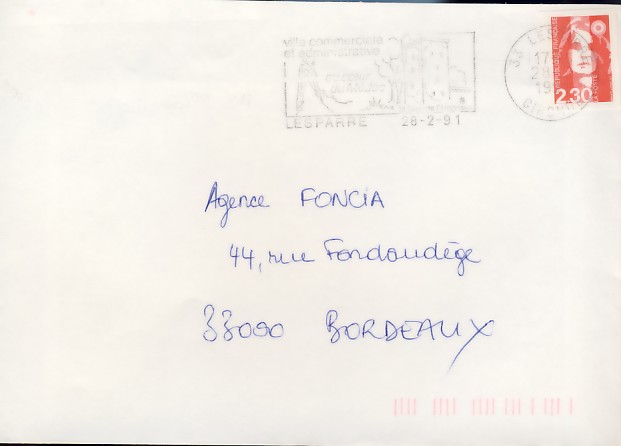 ville commerciale
et administrative
LESPARRE 28-2-91
33 LES
17
28
19
GIRONDE
REPUBLIQUE FRANÇAISE
2,30
LA POSTE
Agence FONCIA
44, rue Fondaudège
33000 BORDEAUX